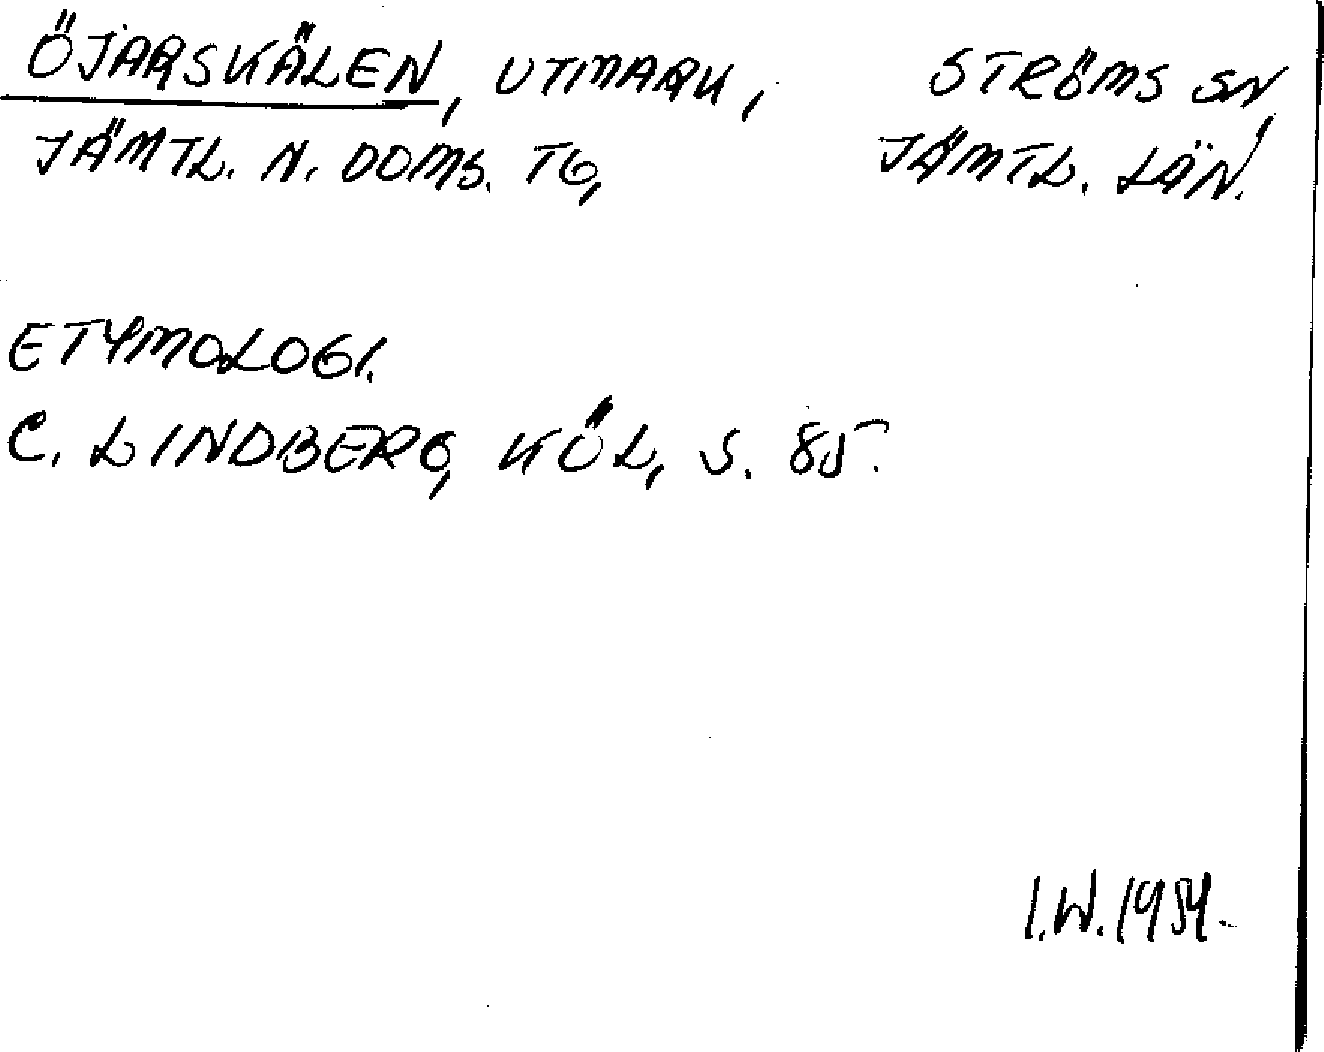 ÖJARSKÄLEN, UTMARK, STRÖMS SN,
JÄMTL. N. DOMS. TG, JÄMTL. LÄN.
ETYMOLOGI.
C. LINDBERG, KÖL, S. 85.
I.W. 1954.